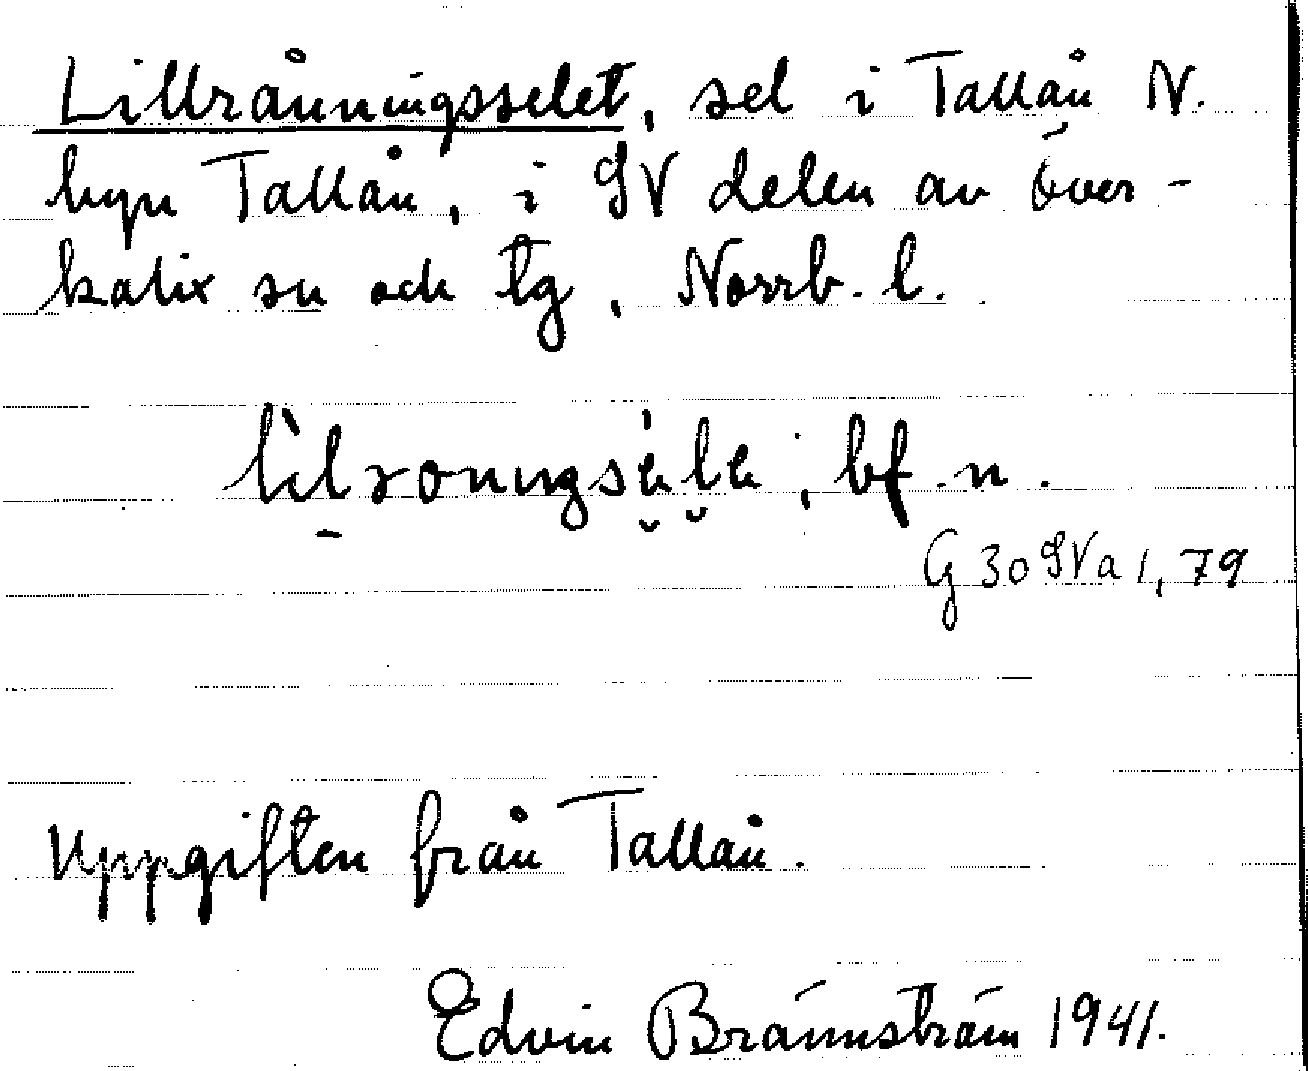 Lillråningsselet, sel i Tallån N.
byn Tallån, i SV delen av Över-
kalix sn och tg, Norrb. l.
bf. n.
G 30 SV a 1, 79
Uppgiften från Tallån.
Edvin Brännström 1941.